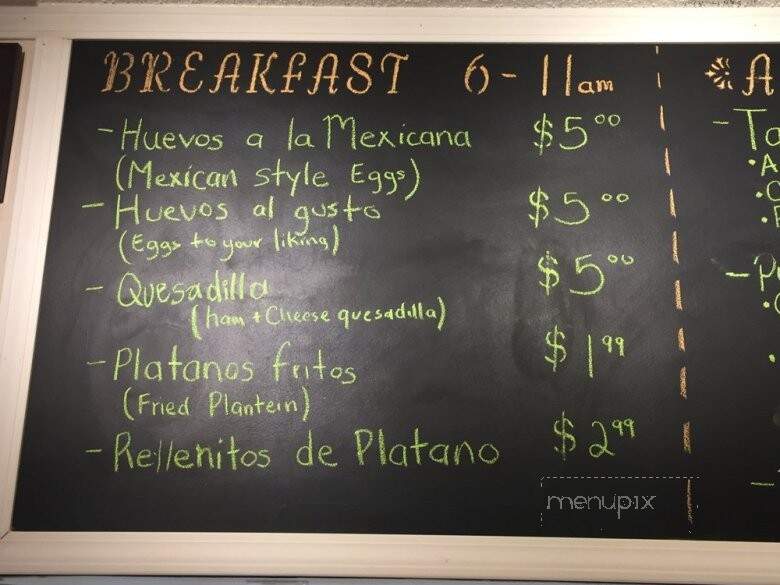 BREAKFAST 6-11am
- Huevos a la Mexicana $5.00
(Mexican style Eggs)
- Huevos al gusto $5.00
(Eggs to your liking)
- Quesadilla $5.00
(ham + Cheese quesadilla)
- Platanos fritos $1.99
(Fried Plantein)
- Rellenitos de Platano $2.99
menupix